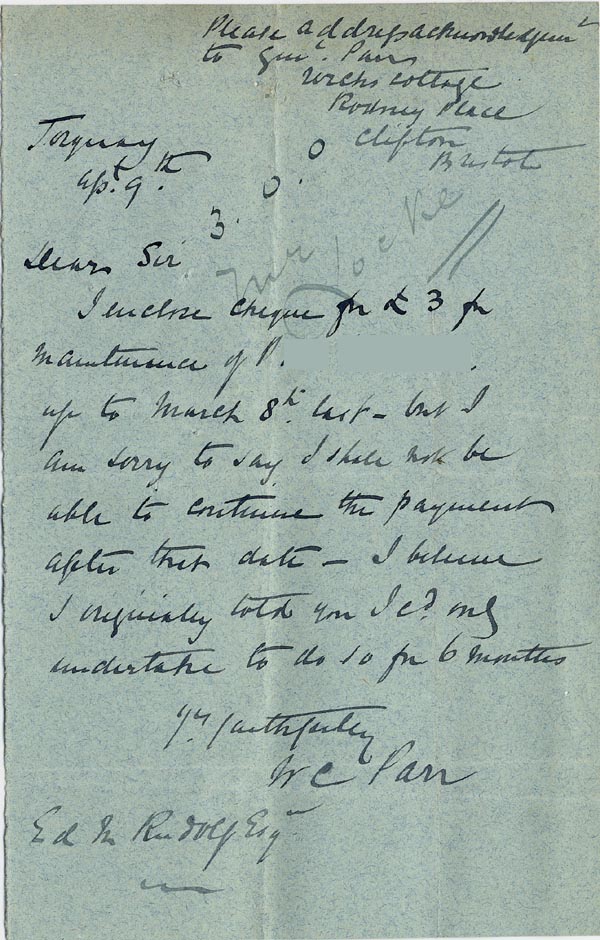 Please address acknowledgmt
to Genl. Parr
Rocks Cottage
Rodney Place
Clifton
Bristol
Torquay
Apl. 9th
3. 0. 0
Dear Sir
Mr Locke
I enclose cheque for £3 for
maintenance of P.
up to March 8th. last – but I
am sorry to say I shall not be
able to continue the payment
after that date – I believe
I originally told you I cd. only
undertake to do so for 6 months
Yrs. faithfully
W C Parr
Ed M Rudolf Esqr